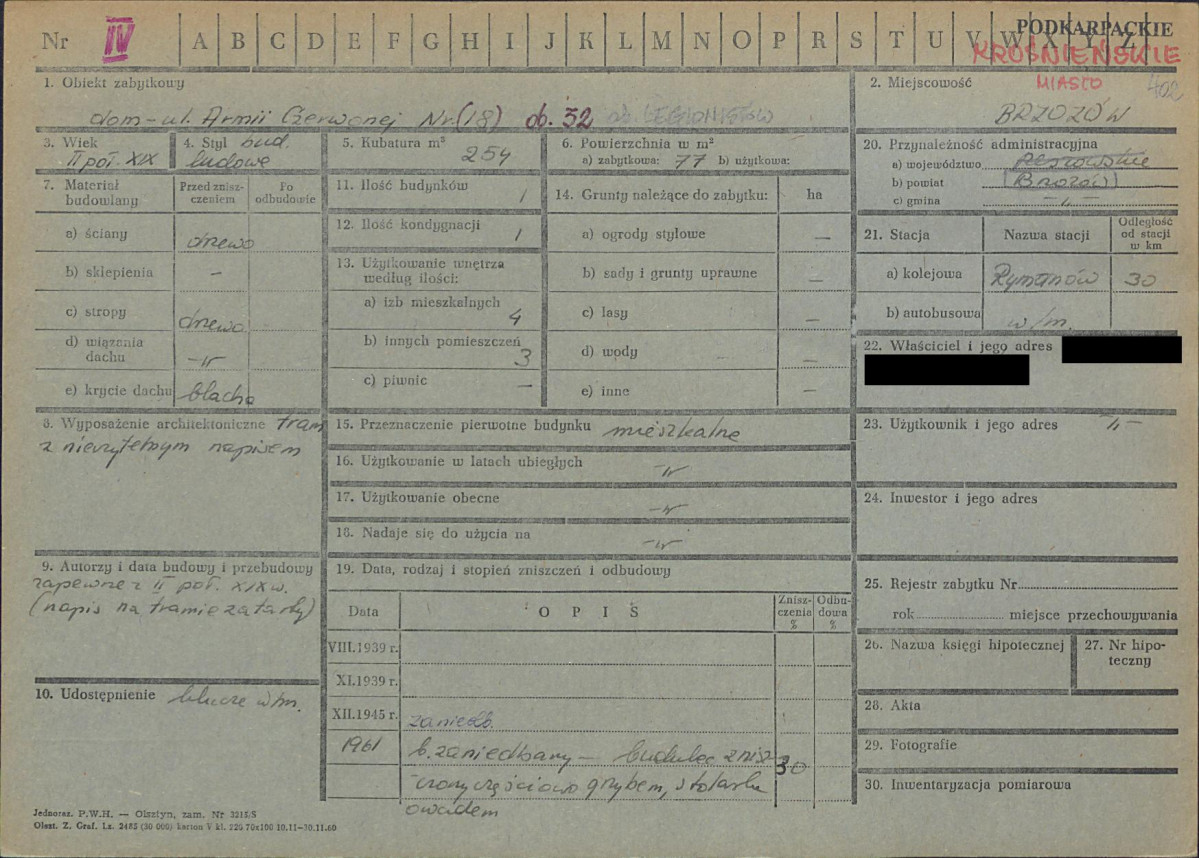 PODKARPACKIE
Nr IV A B C D E F G H I J K L M N O P R S T U V W X Y Z
KROŚNIEŃSKIE
MIASTO 402
1. Obiekt zabytkowy
dom - ul. Armii Czerwonej Nr (18) ob. 32 ob. LEGIONISTÓW
2. Miejscowość
BRZOZÓW
3. Wiek
II poł. XIX
4. Styl bud.
ludowe
5. Kubatura m³
254
6. Powierzchnia w m²
a) zabytkowa: 77 b) użytkowa:
20. Przynależność administracyjna
a) województwo rzeszowskie
b) powiat (Brzozów)
c) gmina -"-
7. Materiał budowlany
Przed zniszczeniem
Po odbudowie
a) ściany drzewo
b) sklepienia –
c) stropy drzewo
d) wiązania dachu -"-
e) krycie dachu blacha
11. Ilość budynków 1
12. Ilość kondygnacji 1
13. Użytkowanie wnętrza według ilości:
a) izb mieszkalnych 4
b) innych pomieszczeń 3
c) piwnic –
14. Grunty należące do zabytku: ha
a) ogrody stylowe —
b) sady i grunty uprawne —
c) lasy —
d) wody —
e) inne —
21. Stacja
Nazwa stacji
Odległość od stacji w km
a) kolejowa Rymanów 30
b) autobusowa w/m.
22. Właściciel i jego adres
8. Wyposażenie architektoniczne tram
z nieczytelnym napisem
15. Przeznaczenie pierwotne budynku mieszkalne
16. Użytkowanie w latach ubiegłych -"-
17. Użytkowanie obecne -"-
18. Nadaje się do użycia na -"-
23. Użytkownik i jego adres -"-
24. Inwestor i jego adres
9. Autorzy i data budowy i przebudowy
zapewne z II poł. XIX w.
(napis na tramie zatarty)
19. Data, rodzaj i stopień zniszczeń i odbudowy
Data
OPIS
Zniszczenia %
Odbudowa %
VIII.1939 r.
XI.1939 r.
XII.1945 r. zaniedb.
1961 b. zaniedbany – budulec znisz- 30
czony częściowo grzybem, stolarka
owadem
25. Rejestr zabytku Nr
rok miejsce przechowywania
26. Nazwa księgi hipotecznej
27. Nr hipoteczny
10. Udostępnienie klucze w/m.
28. Akta
29. Fotografie
30. Inwentaryzacja pomiarowa
Jednoraz. P.W.H. — Olsztyn, zam. Nr 3215/S
Olszt. Z. Graf. Lz. 2485 (30 000) karton V kl. 220 70x100 10.11—30.11.60